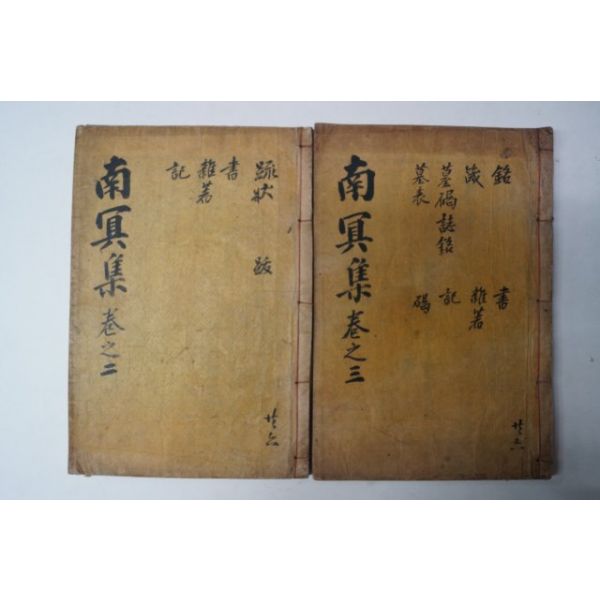 南冥集 卷之二
疏狀 跋
書
雜著
記
廿六
南冥集 卷之三
銘 書
箴 雜著
墓碣誌銘 記
墓表 碣
廿六